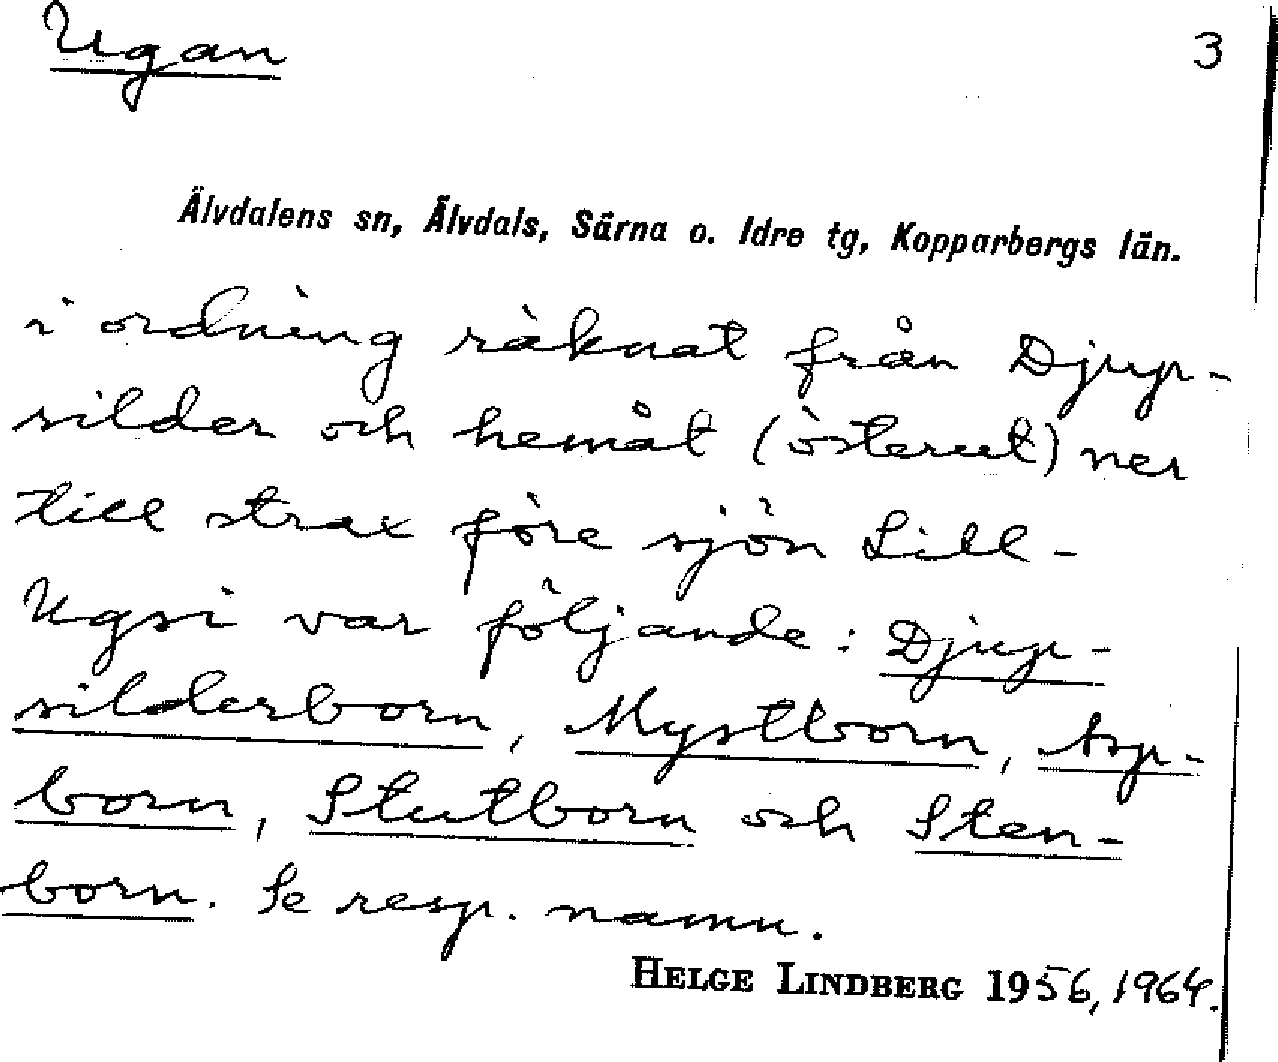 Ugan 3
Älvdalens sn, Älvdals, Särna o. Idre tg, Kopparbergs län.
i ordning räknat från Djup-
silder och hemåt (österut) ner
till strax före sjön Lill-
Ugsi var följande: Djup-
silderborn, Mystborn, Asp-
born, Stutborn och Sten-
born. Se resp. namn.
HELGE LINDBERG 1956, 1964.